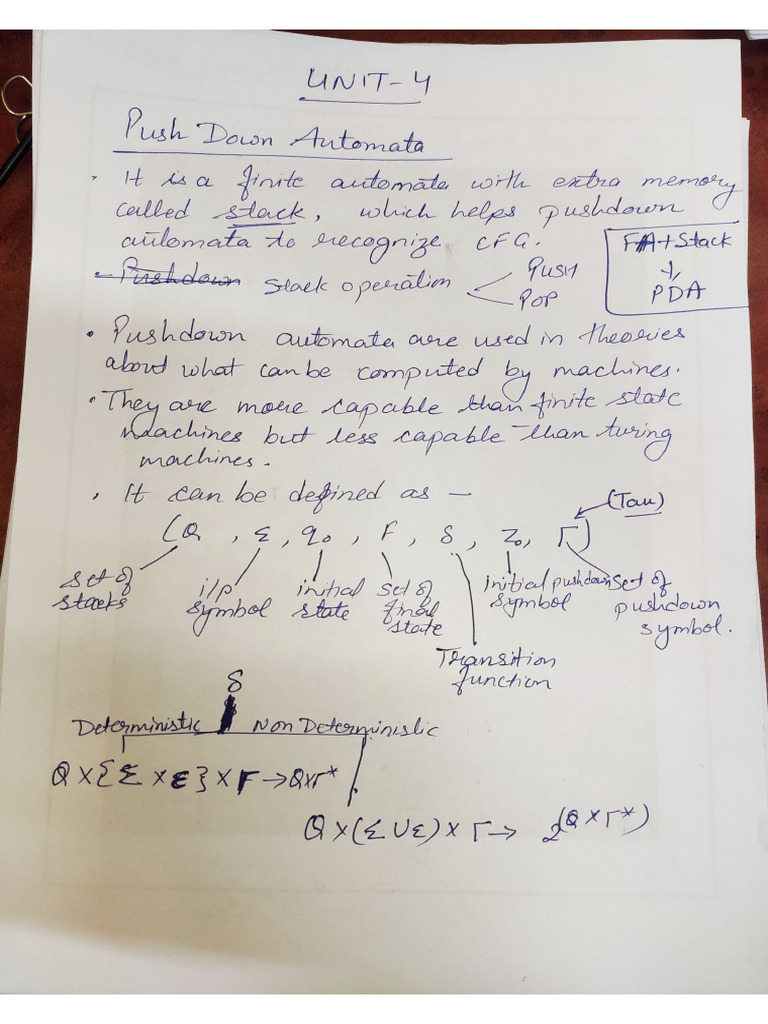 UNIT-4
Push Down Automata
• It is a finite automata with extra memory
called stack, which helps pushdown
automata to recognize CFG.
FA + Stack
↓
PDA
- Pushdown Stack operation
PUSH
POP
• Pushdown automata are used in theories
about what can be computed by machines.
• They are more capable than finite state
machines but less capable than turing
machines.
• It can be defined as —
(Tau)
(Q , Σ, q₀ , F , δ , z₀ , Γ)
set of stacks
i/p symbol
initial state
set of final state
Transition function
initial pushdown symbol
set of pushdown symbol.
δ
Deterministic Non Deterministic
Q × {Σ × ε} × Γ → Q×Γ*
Q × (Σ ∪ ε) × Γ → 2^(Q × Γ*)